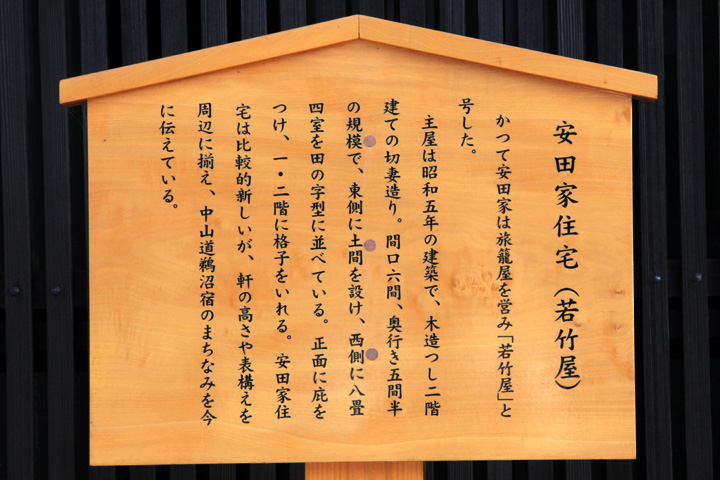 安田家住宅（若竹屋）
かつて安田家は旅籠屋を営み「若竹屋」と
号した。
主屋は昭和五年の建築で、木造つし二階
建ての切妻造り。間口六間、奥行き五間半
の規模で、東側に土間を設け、西側に八畳
四室を田の字型に並べている。正面に庇を
つけ、一・二階に格子をいれる。安田家住
宅は比較的新しいが、軒の高さや表構えを
周辺に揃え、中山道鵜沼宿のまちなみを今
に伝えている。